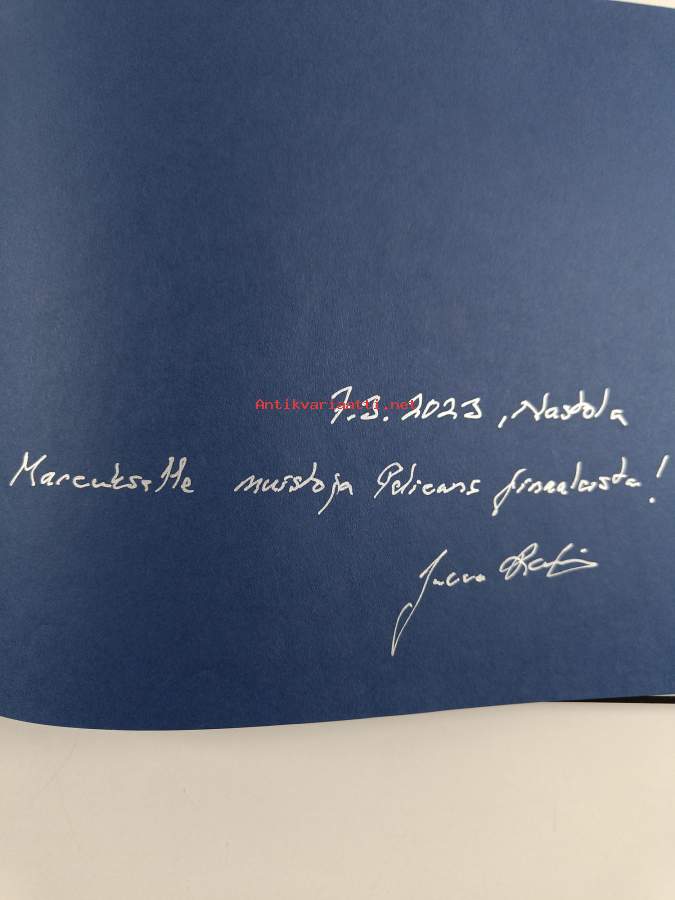 Antikvariaatti.net
7.3.2023, Nastola
Marcukselle muistoja Pelicans finaaleista!